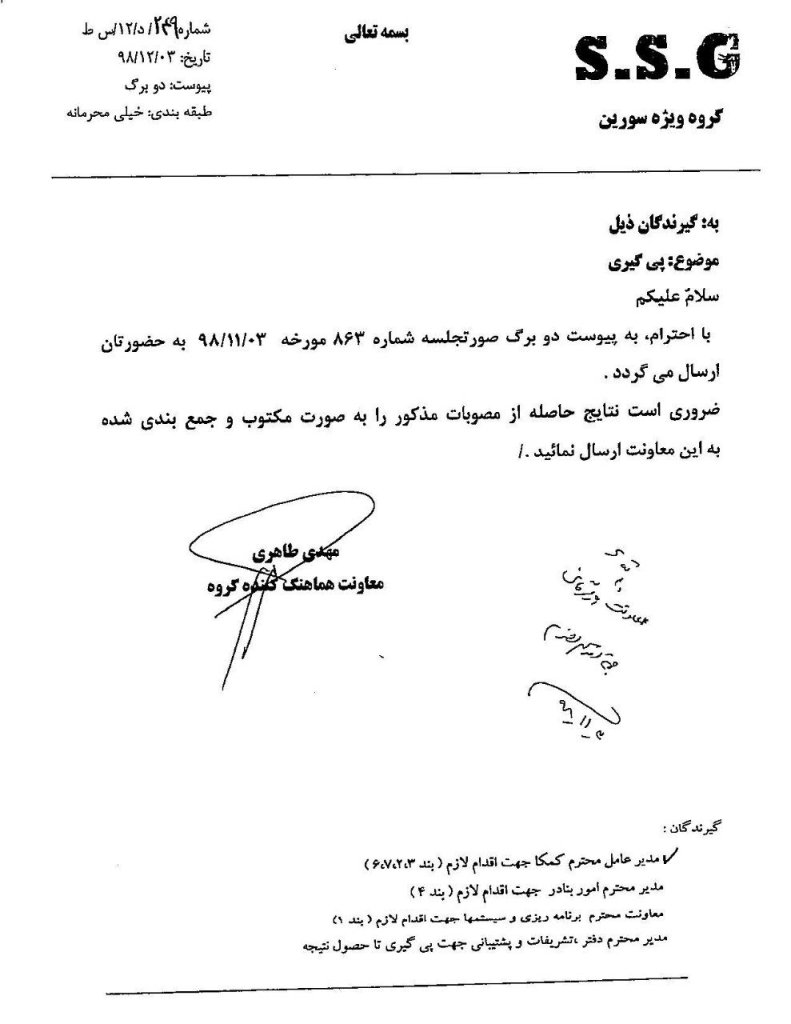 بسمه تعالی
S.S.G
گروه ویژه سورین
شماره۲۴۹/د/۱۲/س ط
تاریخ: ۹۸/۱۲/۰۳
پیوست: دو برگ
طبقه بندی: خیلی محرمانه
به: گیرندگان ذیل
موضوع: پی گیری
سلامٌ علیکم
با احترام، به پیوست دو برگ صورتجلسه شماره ۸۶۳ مورخه ۹۸/۱۱/۰۳ به حضورتان
ارسال می گردد .
ضروری است نتایج حاصله از مصوبات مذکور را به صورت مکتوب و جمع بندی شده
به این معاونت ارسال نمائید ./
مهدی طاهری
معاونت هماهنگ کننده گروه
معاونت
گیرندگان :
✓ مدیر عامل محترم کمکا جهت اقدام لازم ( بند ۶،۷،۲،۳)
مدیر محترم امور بنادر جهت اقدام لازم ( بند ۴)
معاونت محترم برنامه ریزی و سیستمها جهت اقدام لازم ( بند ۱)
مدیر محترم دفتر ،تشریفات و پشتیبانی جهت پی گیری تا حصول نتیجه